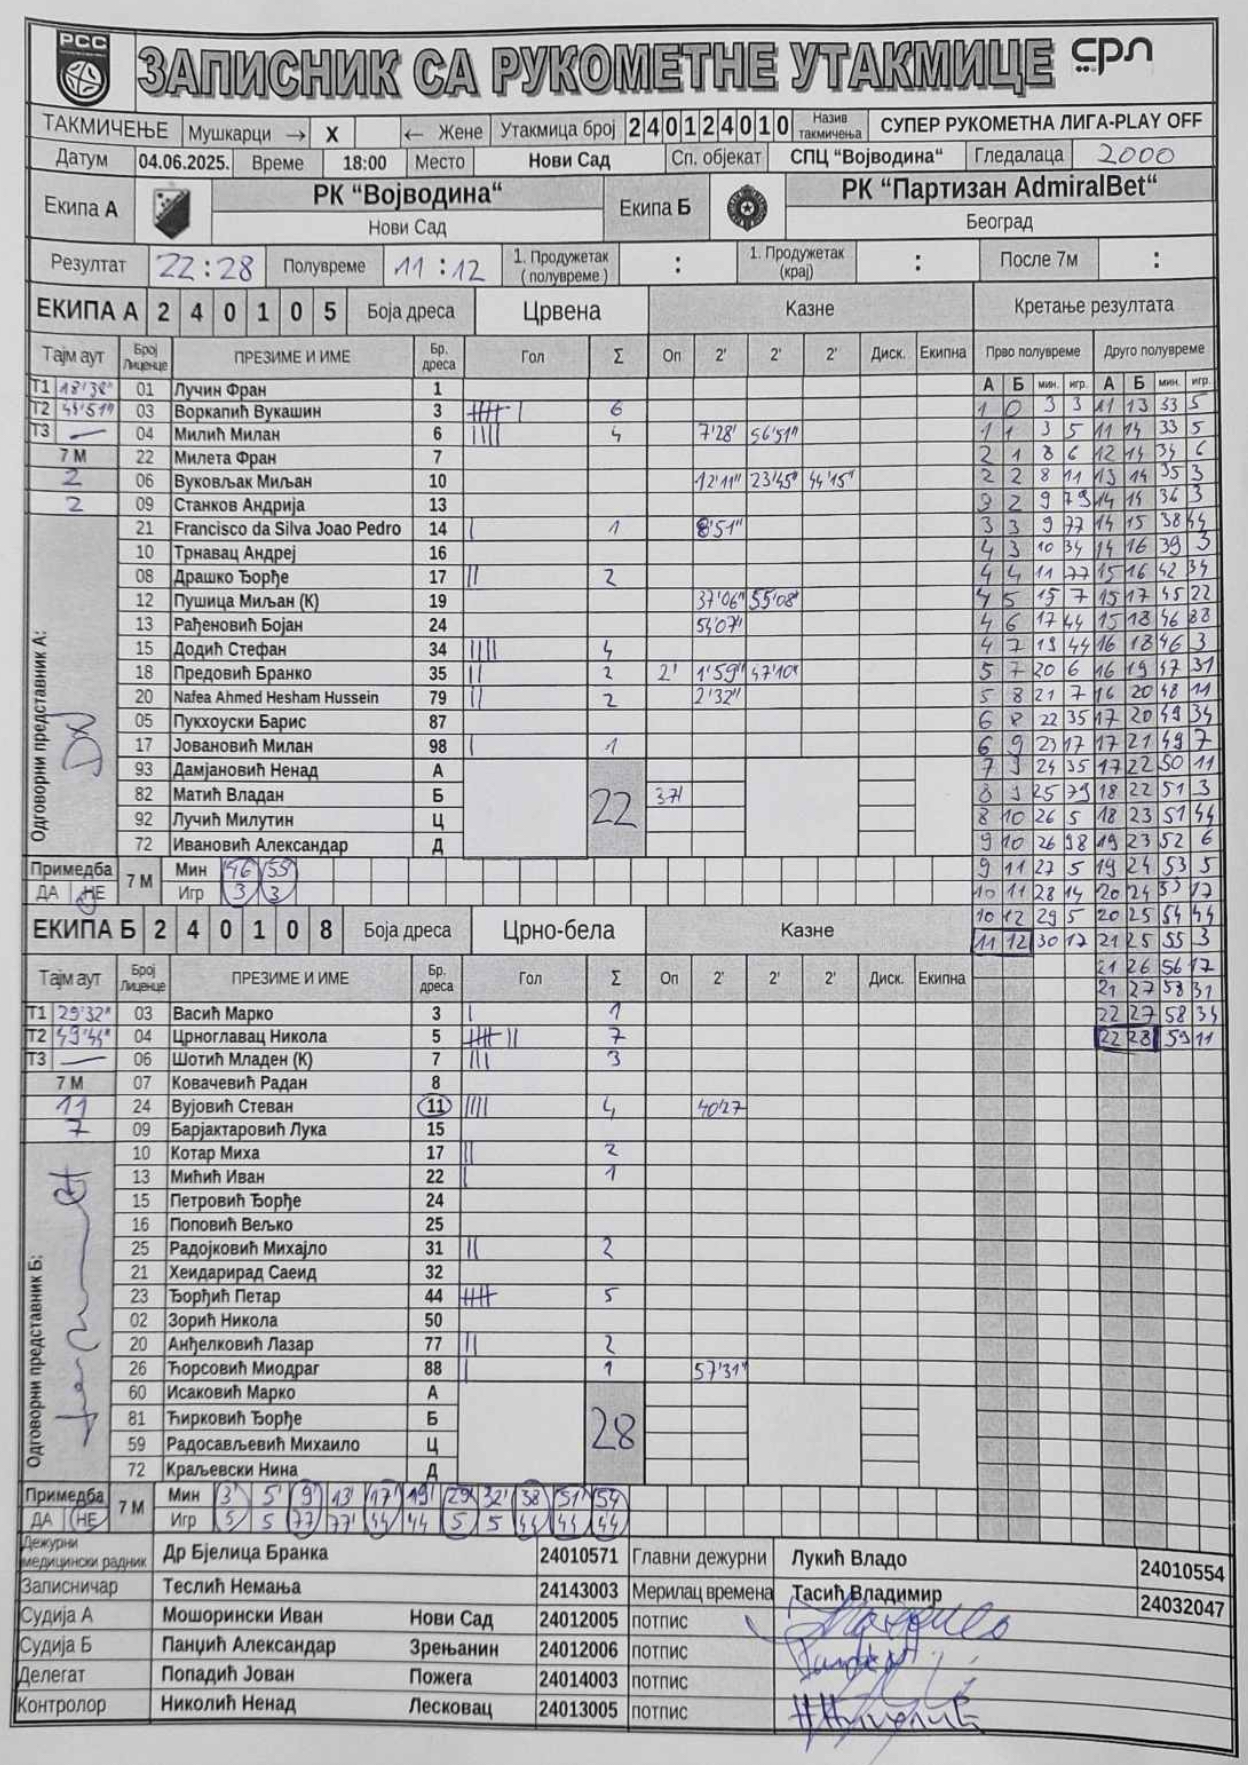 РСС
ЗАПИСНИК СА РУКОМЕТНЕ УТАКМИЦЕ срл
ТАКМИЧЕЊЕ Мушкарци → X ← Жене Утакмица број 2 4 0 1 2 4 0 1 0 Назив такмичења СУПЕР РУКОМЕТНА ЛИГА-PLAY OFF
Датум 04.06.2025. Време 18:00 Место Нови Сад Сп. објекат СПЦ "Војводина“ Гледалаца 2000
Екипа А РК “Војводина“ Екипа Б РК “Партизан AdmiralBet“
Нови Сад Београд
Резултат 22:28 Полувреме 11:12 1. Продужетак (полувреме) : 1. Продужетак (крај) : После 7м :
ЕКИПА А 2 4 0 1 0 5 Боја дреса Црвена Казне Кретање резултата
Тајм аут Број Лиценце ПРЕЗИМЕ И ИМЕ Бр. дреса Гол Σ Оп 2' 2' 2' Диск. Екипна Прво полувреме Друго полувреме
Т1 18'38" 01 Лучин Фран 1 А Б мин. игр. А Б мин. игр.
Т2 03 Воркапић Вукашин 3 6 1 0 3 3 11 13 33 5
Т3 — 04 Милић Милан 6 4 7'28" 56'51" 1 1 3 5 11 14 33 5
7 М 22 Милета Фран 7 2 1 8 6 12 14 34 6
2 06 Вуковљак Миљан 10 12'11" 23'45" 44'15" 2 2 8 11 13 14 35 3
2 09 Станков Андрија 13 3 2 9 79 14 14 36 3
21 Francisco da Silva Joao Pedro 14 1 8'51" 3 3 9 77 14 15 38 44
10 Трнавац Андреј 16 4 3 10 34 14 16 39 3
08 Драшко Ђорђе 17 2 4 4 11 77 15 16 42 34
12 Пушица Миљан (К) 19 37'06" 55'08" 4 5 15 7 15 17 45 22
13 Рађеновић Бојан 24 54'07" 4 6 17 44 15 18 46 88
15 Додић Стефан 34 4 4 7 19 44 16 18 46 3
18 Предовић Бранко 35 2 2' 1'59" 47'10" 5 7 20 6 16 19 47 31
20 Nafea Ahmed Hesham Hussein 79 2 2'32" 5 8 21 7 16 20 48 11
05 Пукхоуски Барис 87 6 8 22 35 17 20 49 34
17 Јовановић Милан 98 1 6 9 23 17 17 21 49 7
93 Дамјановић Ненад А 7 9 24 35 17 22 50 11
82 Матић Владан Б 22 37' 8 9 25 79 18 22 51 3
92 Лучић Милутин Ц 8 10 26 5 18 23 51 44
72 Ивановић Александар Д 9 10 26 98 19 23 52 6
Одговорни представник А:
Примедба 7 М Мин 46 55 9 11 27 5 19 24 53 5
ДА НЕ Игр 3 3 10 11 28 14 20 24 53 17
ЕКИПА Б 2 4 0 1 0 8 Боја дреса Црно-бела Казне 10 12 29 5 20 25 54 44
11 12 30 17 21 25 55 3
Тајм аут Број Лиценце ПРЕЗИМЕ И ИМЕ Бр. дреса Гол Σ Оп 2' 2' 2' Диск. Екипна 21 26 56 17
21 27 58 31
Т1 29'32" 03 Васић Марко 3 1 22 27 58 34
Т2 49'44" 04 Црноглавац Никола 5 7 22 28 59 11
Т3 — 06 Шотић Младен (К) 7 3
7 М 07 Ковачевић Радан 8
11 24 Вујовић Стеван 11 4 40'27
7 09 Барјактаровић Лука 15
10 Котар Миха 17 2
13 Мићић Иван 22 1
15 Петровић Ђорђе 24
16 Поповић Вељко 25
25 Радојковић Михајло 31 2
21 Хеидарирад Саеид 32
23 Ђорђић Петар 44 5
02 Зорић Никола 50
20 Анђелковић Лазар 77 2
26 Ћорсовић Миодраг 88 1 57'31"
60 Исаковић Марко А
81 Ћирковић Ђорђе Б 28
59 Радосављевић Михаило Ц
72 Краљевски Нина Д
Одговорни представник Б:
Примедба 7 М Мин 3' 5' 9' 13' 17' 19' 29' 32' 38 51' 54
ДА НЕ Игр 5 5 77 77' 44 44 5 5 44 44 44
Дежурни медицински радник Др Бјелица Бранка 24010571 Главни дежурни Лукић Владо 24010554
Записничар Теслић Немања 24143003 Мерилац времена Тасић Владимир 24032047
Судија А Мошорински Иван Нови Сад 24012005 потпис
Судија Б Панџић Александар Зрењанин 24012006 потпис
Делегат Попадић Јован Пожега 24014003 потпис
Контролор Николић Ненад Лесковац 24013005 потпис